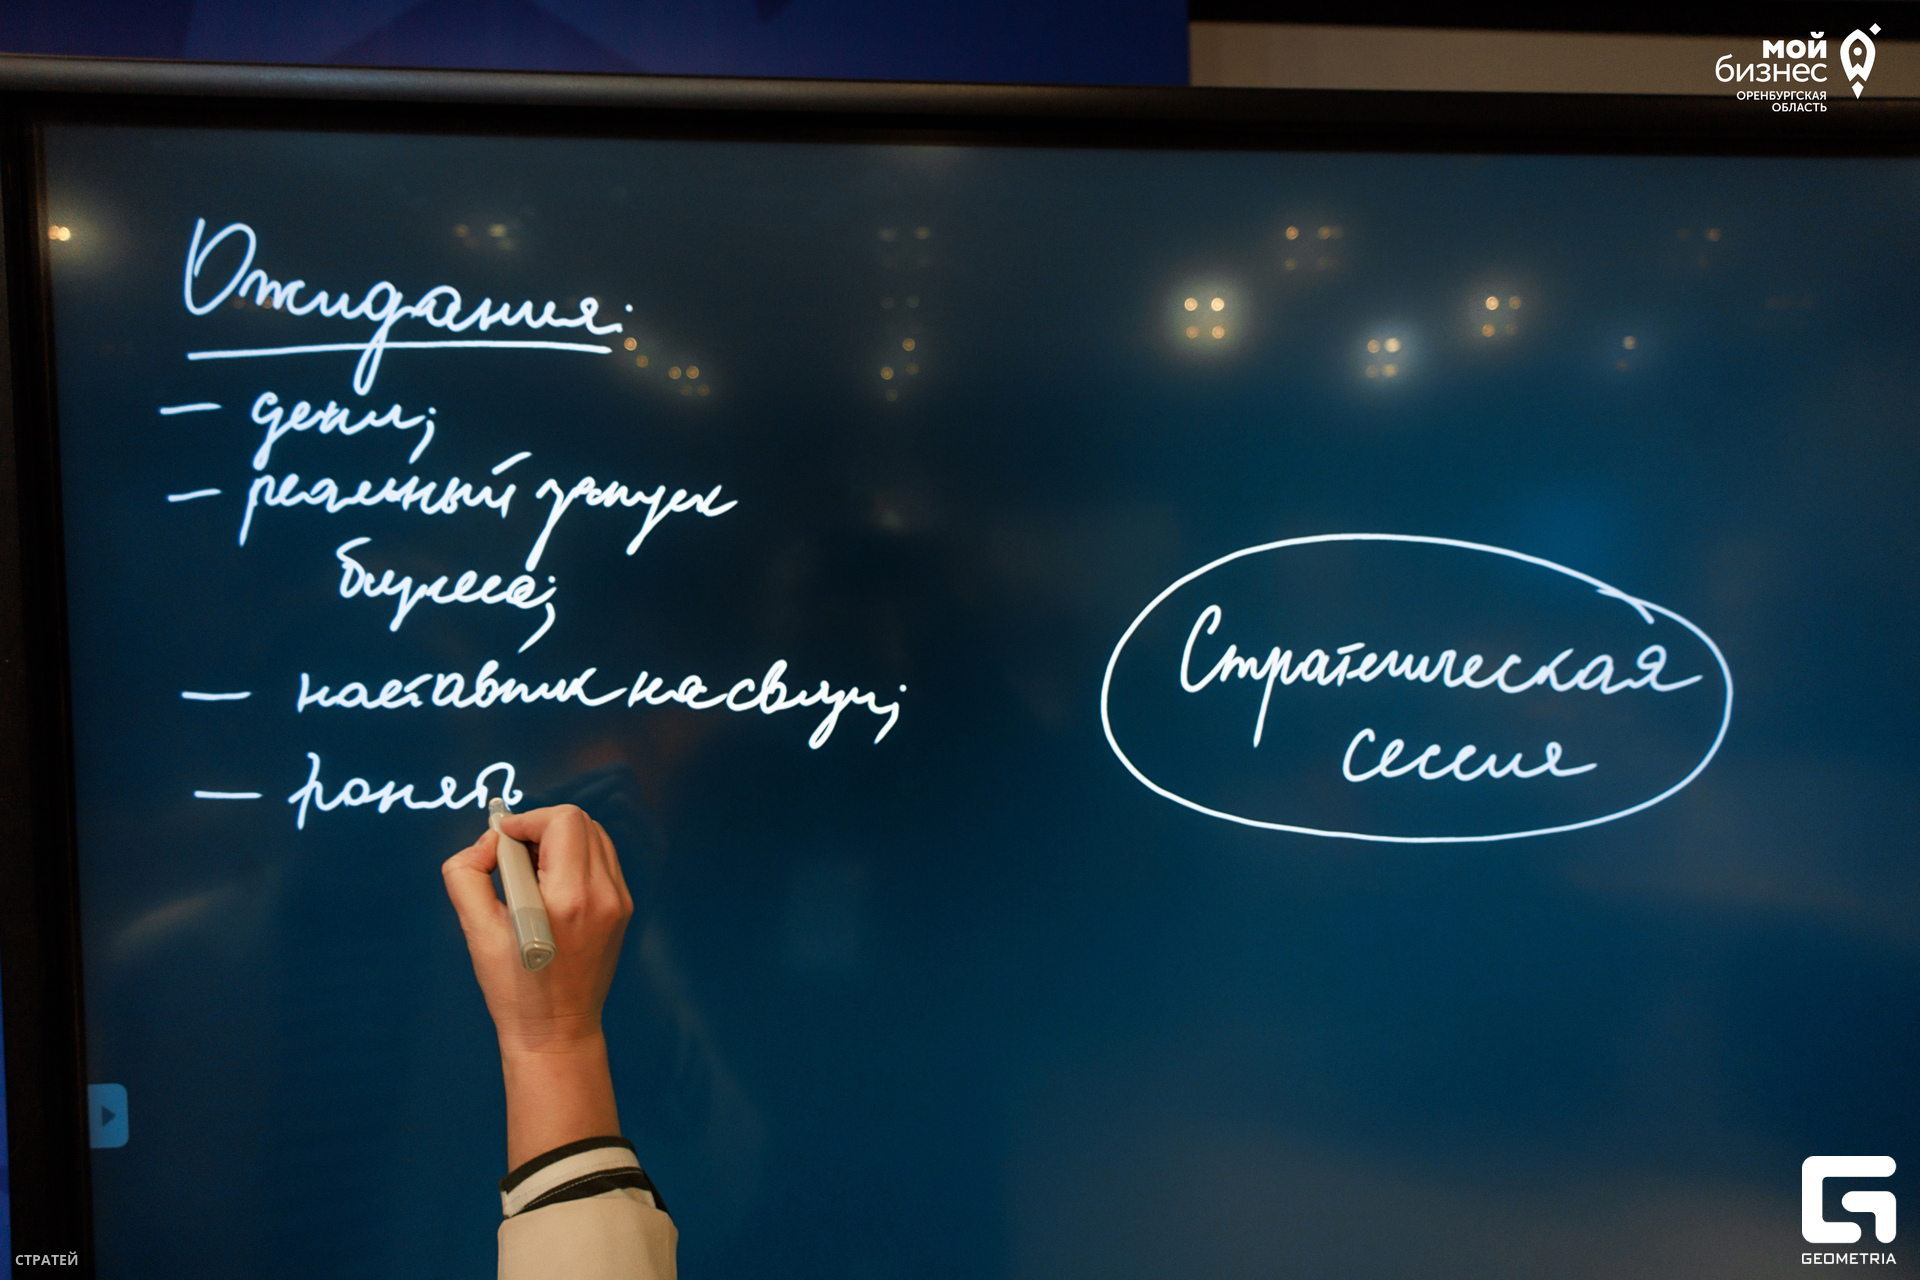 мой
бизнес
ОРЕНБУРГСКАЯ
ОБЛАСТЬ
Ожидания:
— деньги;
— реальный запуск
бизнеса;
— наставник на связи;
— понять
Стратегическая
сессия
СТРАТЕЙ
GEOMETRIA